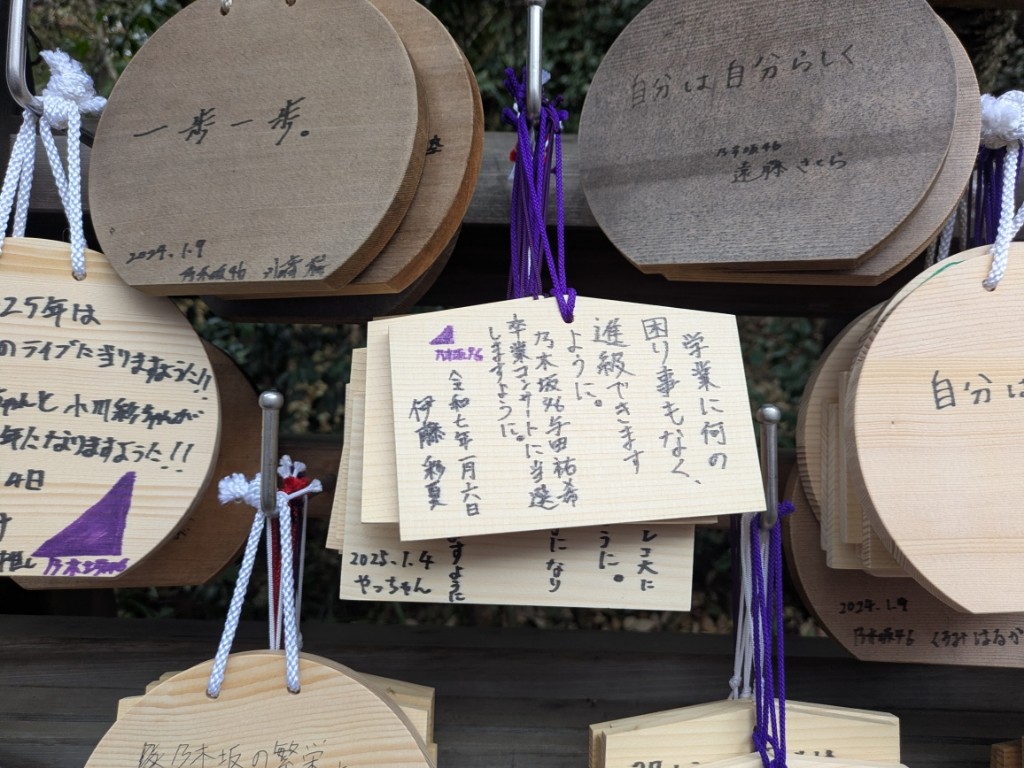 一歩一歩。
2024.1.9
乃木坂46
自分は自分らしく
乃木坂46
遠藤さくら
25年は
のライブに当りますように!!
ちゃんと小川彩ちゃんが
年になりますように!!
4日
推し
乃木坂46
乃木坂46
学業に何の
困り事もなく、
進級できます
ように。
乃木坂46与田祐希
卒業コンサートに当選
しますように。
令和七年一月六日
伊藤彩夏
レコ大に
うに。
になり
ますように
2025.1.4
やっちゃん
自分は
2024.1.9
乃木坂46 くろみはるか
乃木坂の繁栄